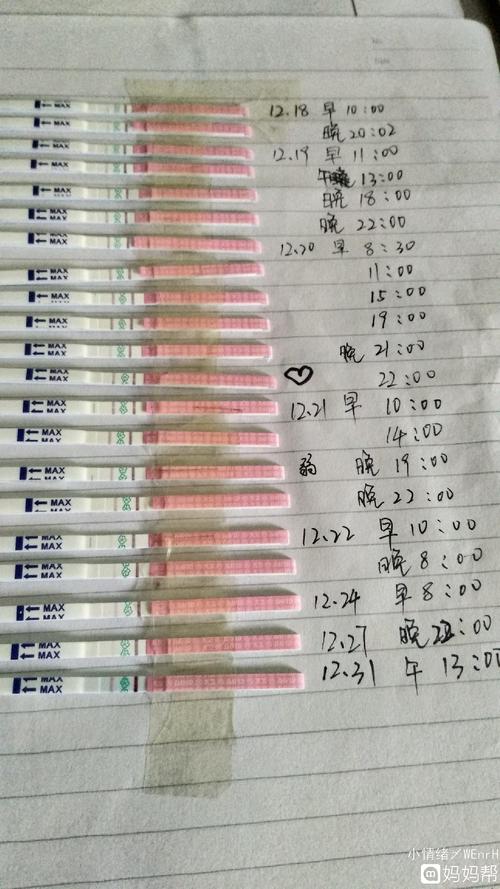 12.18 早 10:00
晚 20:02
12.19 早 11:00
午 13:00
晚 18:00
晚 22:00
12.20 早 8:30
11:00
15:00
19:00
晚 21:00
22:00
12.21 早 10:00
14:00
弱 晚 19:00
晚 22:00
12.22 早 10:00
晚 8:00
12.24 早 8:00
12.27 晚 22:00
12.31 午 13:00
MAX
MAX
MAX
MAX
MAX
MAX
MAX
MAX
MAX
MAX
MAX
MAX
MAX
MAX
MAX
MAX
MAX
MAX
MAX
MAX
MAX
小情绪/WEnrH
妈妈帮